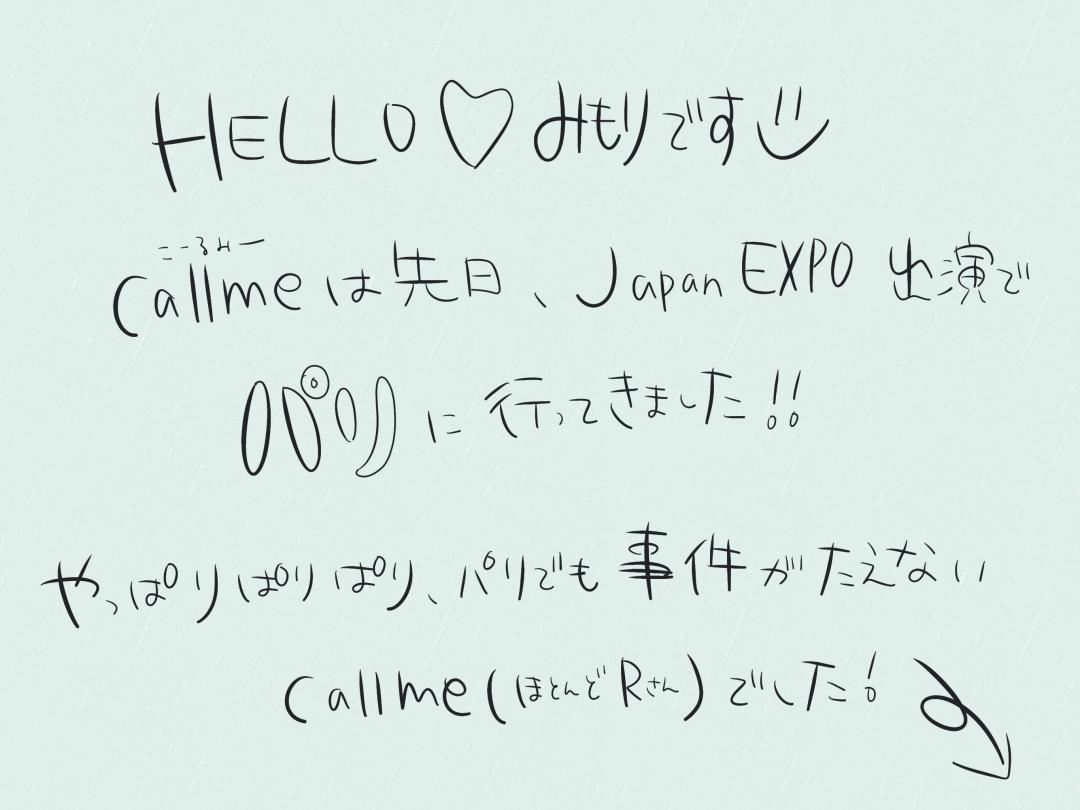 HELLO♡みもりです
こーるみー
callmeは先日、Japan EXPO 出演で
パリに行ってきました!!
やっぱりぱりぱり、パリでも事件がたえない
callme(ほとんどRさん)でした!